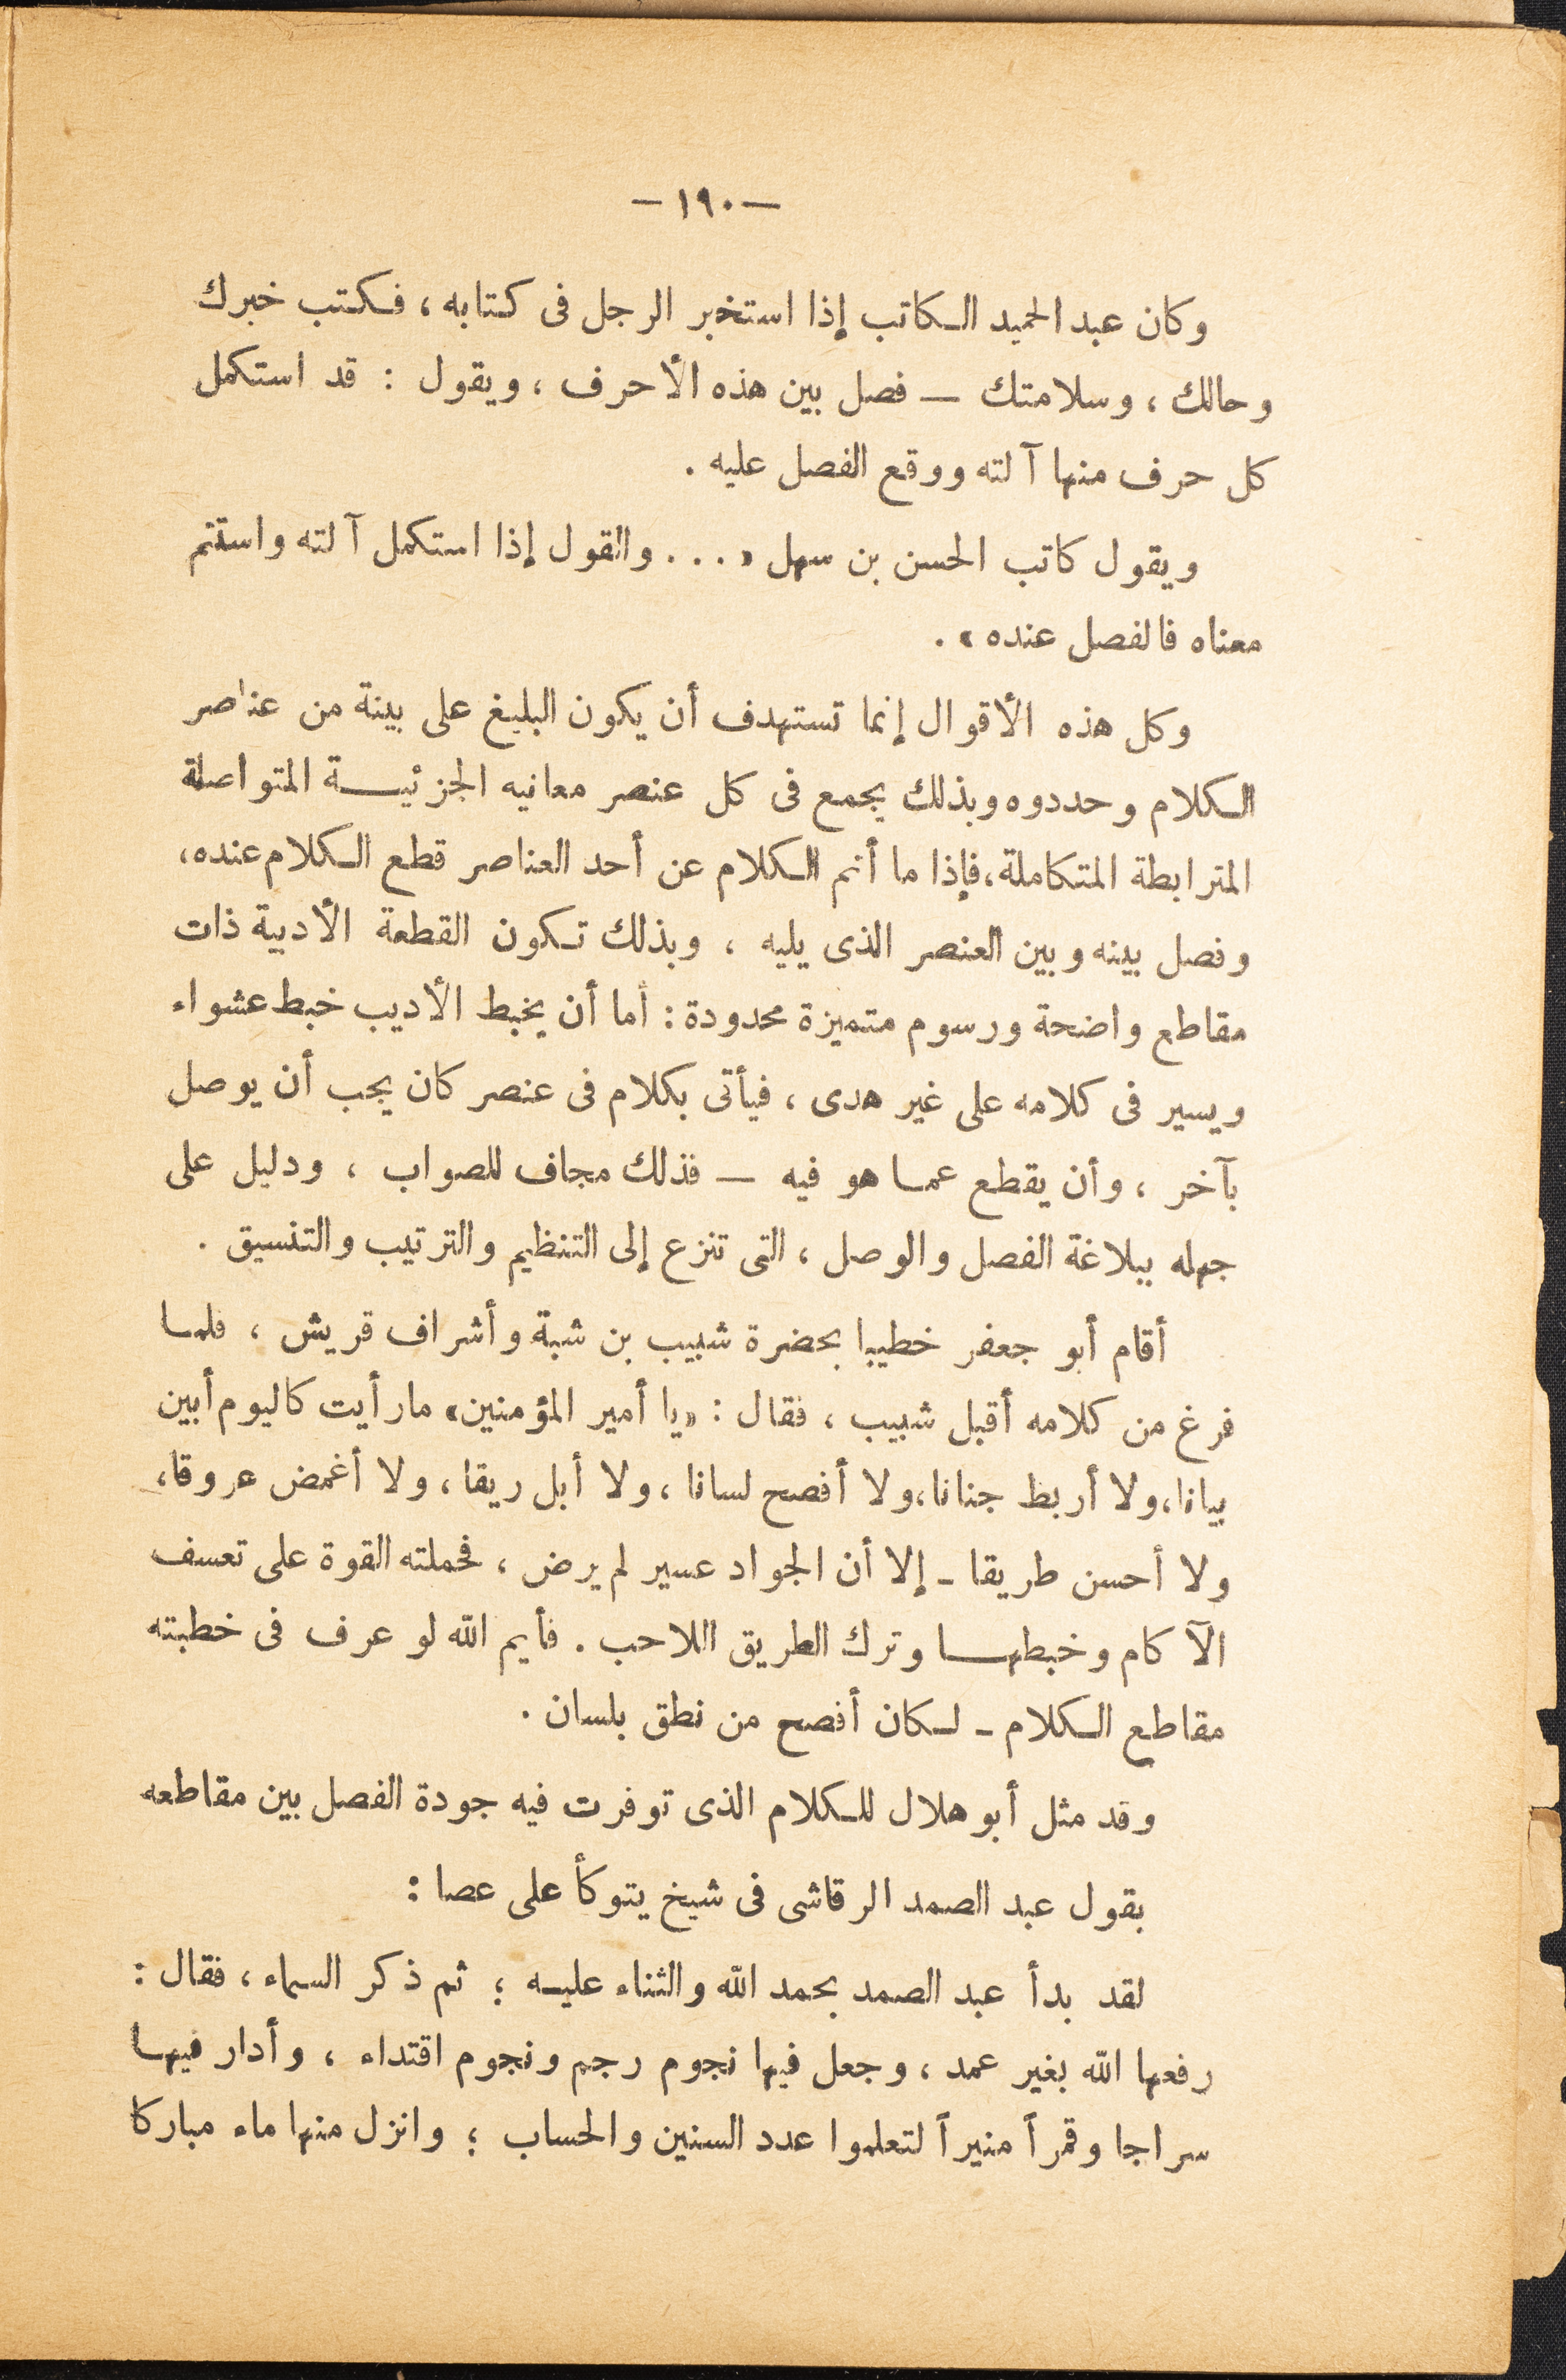 — ١٩٠ —
وكان عبد الحميد الكاتب إذا استخبر الرجل فى كتابه ، فكتب خبرك
وحالك ، وسلامتك — فصل بين هذه الأحرف ، ويقول : قد استكمل
كل حرف منها آلته ووقع الفصل عليه .
ويقول كاتب الحسن بن سهل « . . . والقول إذا استكمل آلته واستتم
معناه فالفصل عنده » .
وكل هذه الأقوال إنما تستهدف أن يكون البليغ على بينة من عناصر
الكلام وحددوه وبذلك يجمع فى كل عنصر معانيه الجزئية المتواصلة
المترابطة المتكاملة ، فإذا ما أتم الكلام عن أحد العناصر قطع الكلام عنده ،
وفصل بينه وبين العنصر الذى يليه ، وبذلك تكون القطعة الأدبية ذات
مقاطع واضحة ورسوم متميزة محدودة : أما أن يخبط الأديب خبط عشواء
ويسير فى كلامه على غير هدى ، فيأتى بكلام فى عنصر كان يجب أن يوصل
بآخر ، وأن يقطع عما هو فيه — فذلك مجاف للصواب ، ودليل على
جهله ببلاغة الفصل والوصل ، التى تنزع إلى التنظيم والترتيب والتنسيق .
أقام أبو جعفر خطيبا بحضرة شبيب بن شبة وأشراف قريش ، فلما
فرغ من كلامه أقبل شبيب ، فقال : «يا أمير المؤمنين» ما رأيت كاليوم أبين
بيانا ، ولا أربط جنانا ، ولا أفصح لسانا ، ولا أبل ريقا ، ولا أغمض عروقا ،
ولا أحسن طريقا - إلا أن الجواد عسير لم يرض ، فحملته القوة على تعسف
الآكام وخبطها وترك الطريق اللاحب . فأيم الله لو عرف فى خطبته
مقاطع الكلام - لكان أفصح من نطق بلسان .
وقد مثل أبو هلال للكلام الذى توفرت فيه جودة الفصل بين مقاطعه
بقول عبد الصمد الرقاشى فى شيخ يتوكأ على عصا :
لقد بدأ عبد الصمد بحمد الله والثناء عليه ؛ ثم ذكر السماء ، فقال :
رفعها الله بغير عمد ، وجعل فيها نجوم رجم ونجوم اقتداء ، وأدار فيها
سراجا وقمرأ منيرأ لتعلموا عدد السنين والحساب ؛ وانزل منها ماء مباركا